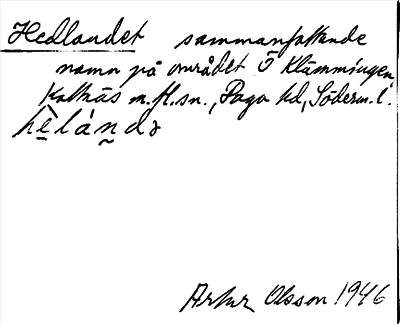 Hedlandet sammanfattande
namn på området Ö Klämmingen,
Kattnäs m.fl. sn., Daga hd, Söderm. l.
hèlánda
Artur Olsson 1946